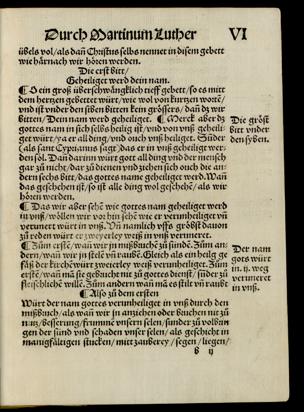 Durch Martinum Luther VI
übels vol/als dañ Christus selbs nennet in disem gebett
wie härnach wir hören werden.
Die erst bitt/
Geheiliget werd dein nam.
¶ O ein groß überschwänglich tieff gebett/so es mit
dem hertzen gebettet würt/wie wol von kurtzen wortē/
vnd ist vnder den siben bitten kein grössers/dañ dz wir
bitten/Dein nam werd geheiliget. ¶ Merck aber dz
gottes nam in sich selbs heilig ist/vnd von vnß geheili-
get würt/ya er all ding/vnd ouch vnß heiliget. Sūder
(als sant Cyprianus sagt) das er in vnß geheiliget wer-
den sol. Dañ darinn würt gott all ding vnd der mensch
gar zů nichte/dar zů dienen vnd ziehen sich ouch die an-
dern sechs bitt/das gottes name geheiliget werd. Wañ
das geschehen ist/so ist alle ding wol geschehē/als wir
hören werden.
Die gröst
bitt vnder
den syben.
¶ Das wir aber sehē wie gottes nam geheiliget werd
in vnß/wöllen wir vor hin sehē wie er verunheiliget vñ
verunert würt in vnß. Vñ namlich vffs gröbst dauon
zů reden würt er zweyerley weiß in vnß verunieret.
¶ Zům erstē/wañ wir in mißbruchē zů sündē. Zům an-
dern/wañ wir jn stelē vñ raubē. Gleich als ein heilig ge
fäß der kirchē würt zweyerley weiß verunheiliget. Zům
erstē/wañ mā sie gebruchet nit zů gottes dienst/sūder zů
fleischlichē willē. Zům andern wañ mā es stilt vñ raubt
Der nam
gots würt
in .ij. weg
verunieret
in vnß.
¶ Also zů dem ersten
Würt der nam gottes verunheiliget in vnß durch den
mißbruch/als wañ wir jn anziehen oder bruchen nit zů
nutz/besserung/frümme vnsern selen/sunder zů volbrin
gen der sünd vnd schaden vnser selen/als geschicht in
manigfaltigen stucken/mit zauberey/segen/liegen/
B ij